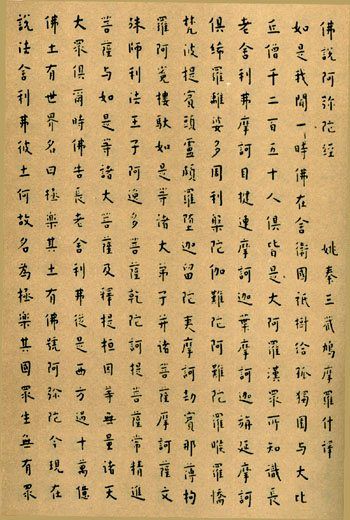 佛說阿弥陀經　姚秦三藏鳩摩羅什譯
如是我聞一時佛在舍衛國祇樹給孤獨園與大比
丘僧千二百五十人俱皆是大阿羅漢眾所知識長
老舍利弗摩訶目揵連摩訶迦葉摩訶迦旃延摩訶
俱絺羅離婆多周利槃陀伽難陀阿難陀羅睺羅憍
梵波提賓頭盧頗羅墮迦留陀夷摩訶劫賓那薄拘
羅阿㝹樓馱如是等諸大弟子并諸菩薩摩訶薩文
殊師利法王子阿逸多菩薩乾陀訶提菩薩常精進
菩薩與如是等諸大菩薩及釋提桓因等無量諸天
大眾俱爾時佛告長老舍利弗從是西方過十萬億
佛土有世界名曰極樂其土有佛號阿弥陀今現在
說法舍利弗彼土何故名為極樂其國眾生無有眾